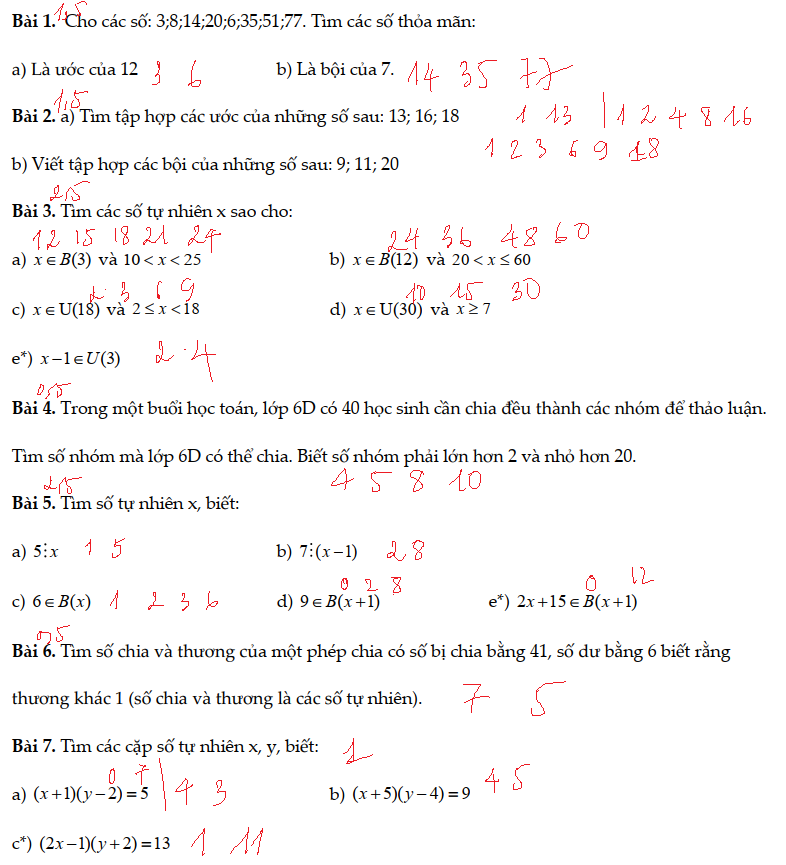 1,5
Bài 1. Cho các số: 3;8;14;20;6;35;51;77. Tìm các số thỏa mãn:
a) Là ước của 12 3 6 b) Là bội của 7. 14 35 77
1,5
Bài 2. a) Tìm tập hợp các ước của những số sau: 13; 16; 18 1 13 | 1 2 4 8 16
1 2 3 6 9 18
b) Viết tập hợp các bội của những số sau: 9; 11; 20
2,5
Bài 3. Tìm các số tự nhiên x sao cho:
12 15 18 21 24 24 36 48 60
a) x∈B(3) và 10<x<25 b) x∈B(12) và 20<x≤60
2 3 6 9 10 15 30
c) x∈U(18) và 2≤x<18 d) x∈U(30) và x≥7
e*) x−1∈U(3) 2 4
0,5
Bài 4. Trong một buổi học toán, lớp 6D có 40 học sinh cần chia đều thành các nhóm để thảo luận.
Tìm số nhóm mà lớp 6D có thể chia. Biết số nhóm phải lớn hơn 2 và nhỏ hơn 20.
4 5 8 10
2,5
Bài 5. Tìm số tự nhiên x, biết:
a) 5⋮x 1 5 b) 7⋮(x−1) 2 8
0 2 8 0 12
c) 6∈B(x) 1 2 3 6 d) 9∈B(x+1) e*) 2x+15∈B(x+1)
0,5
Bài 6. Tìm số chia và thương của một phép chia có số bị chia bằng 41, số dư bằng 6 biết rằng
thương khác 1 (số chia và thương là các số tự nhiên). 7 5
Bài 7. Tìm các cặp số tự nhiên x, y, biết: 1
0 7 | 4 3 4 5
a) (x+1)(y−2)=5 b) (x+5)(y−4)=9
c*) (2x−1)(y+2)=13 1 11